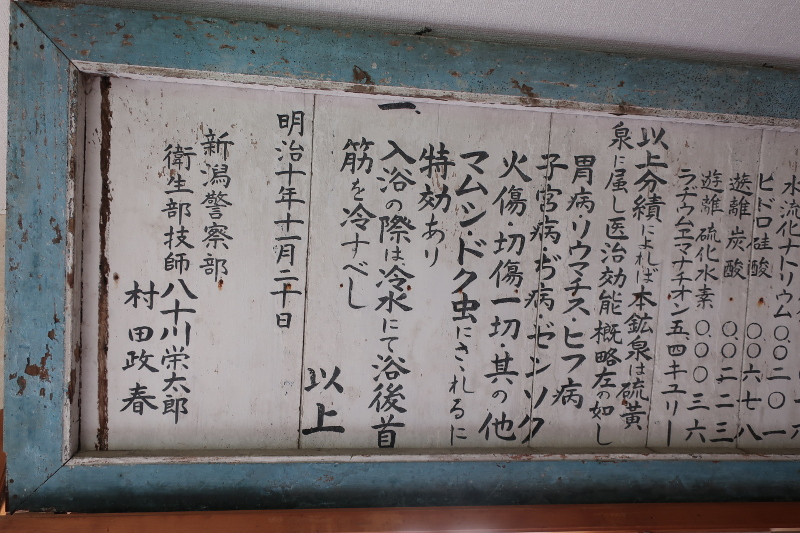 水流化ナトリウム 〇.〇二〇一
ヒドロ硅酸 〇〇六七八
遊離炭酸 〇.〇二二三
遊離硫化水素 〇.〇〇三六
ラヂウムエマナチオン五.四キユリー
以上分績によれば本鉱泉は硫黄
泉に属し医治効能概略左の如し
胃病・リウマチス・ヒフ病
子宮病・ぢ病・ゼンソク
火傷・切傷一切・其の他
マムシ・ドク虫にさゝれるに
特効あり
一、入浴の際は冷水にて浴後首
筋を冷すべし
以上
明治十年十一月二十日
新潟警察部
衛生部技師 八十川栄太郎
村田政春